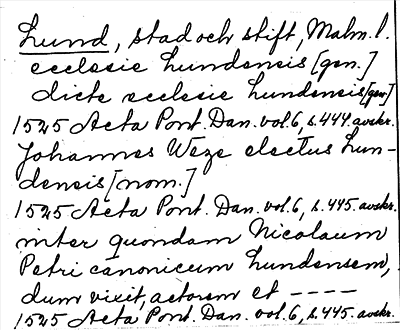 Lund, stad och stift, Malm. l.
ecclesie Lundensis [gen.]
dicte ecclesie Lundensis [gen]
1525 Acta Pont. Dan. vol. 6, s. 444. avskr.
Johannes Weze electus Lun-
densis [nom.]
1525 Acta Pont. Dan. vol. 6, s. 445 avskr.
inter quondam Nicolaum
Petri canonicum Lundensem,
dum vixit, actorem et ----
1525 Acta Pont. Dan. vol. 6, s. 445. avskr.